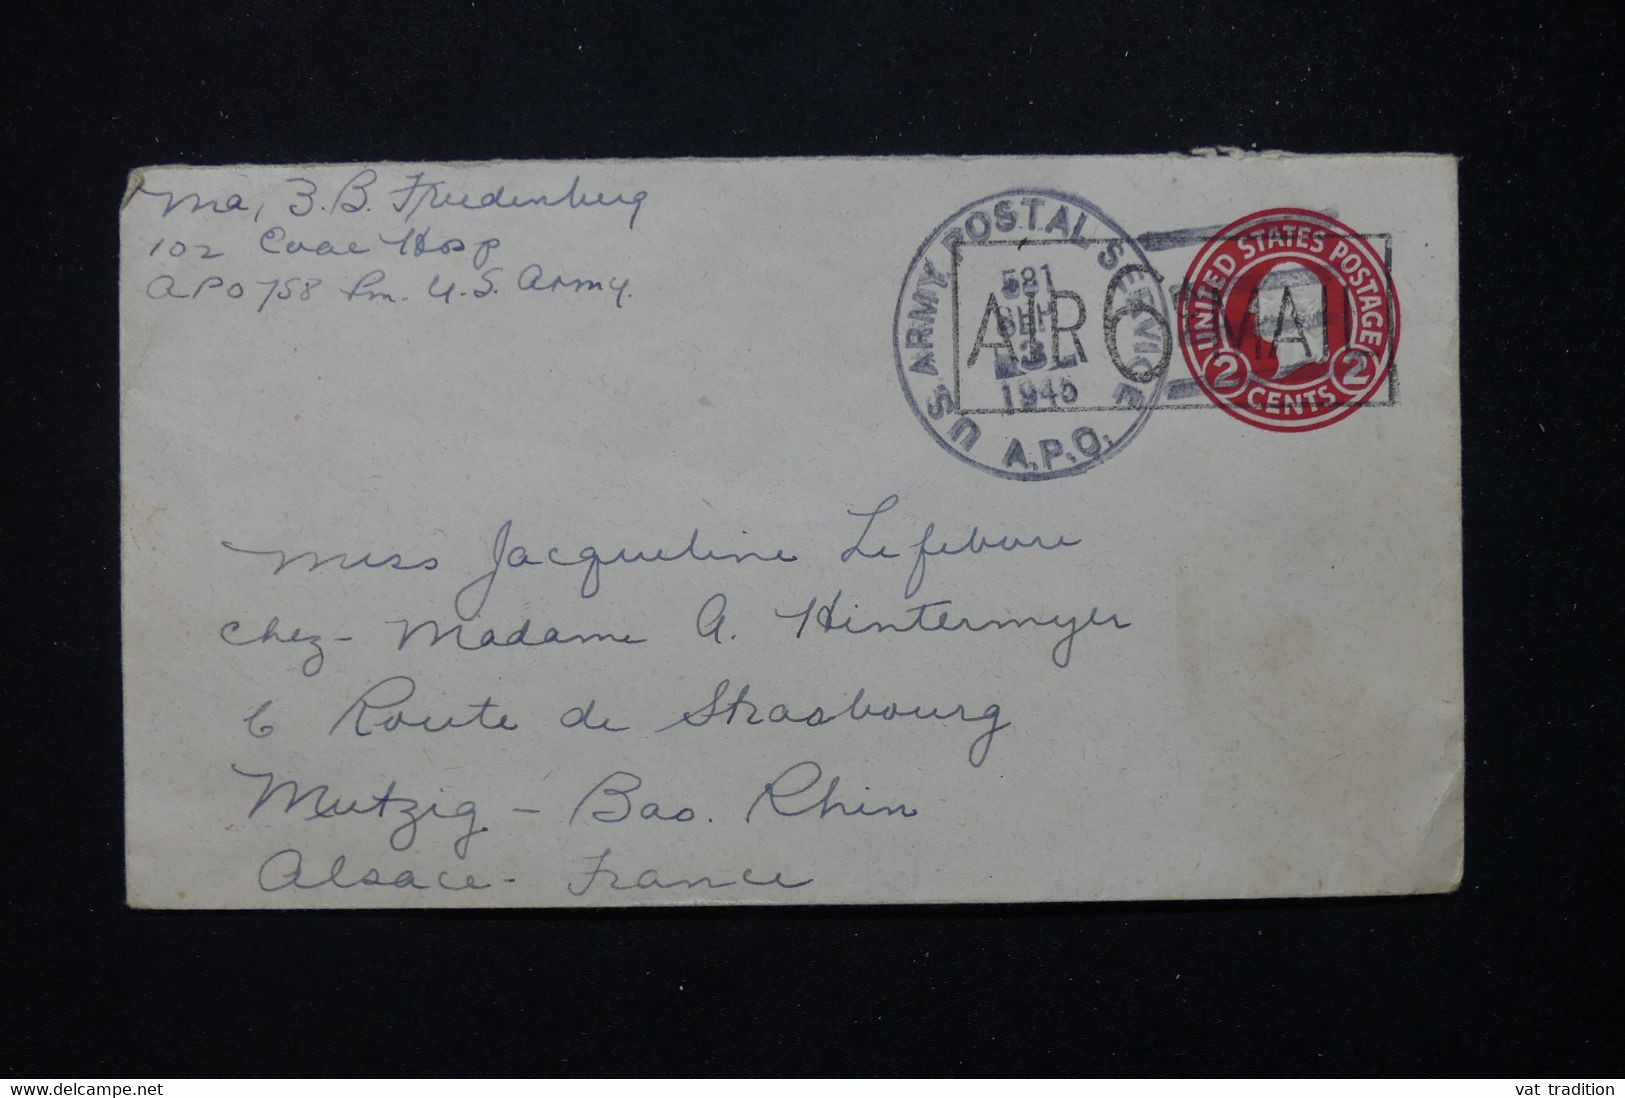 Maj, B. B. Friedenberg
102 Evac Hosp
APO 758 Pm. U.S. Army.
U S ARMY POSTAL SERVICE
A.P.O.
581
SEP
3
1945
AIR 6¢ MAIL
UNITED STATES POSTAGE
2 CENTS 2
Miss Jacqueline Lefebvre
chez - Madame A. Hintermyer
6 Route de Strasbourg
Mutzig - Bas. Rhin
Alsace - France
http://www.delcampe.net
vat tradition